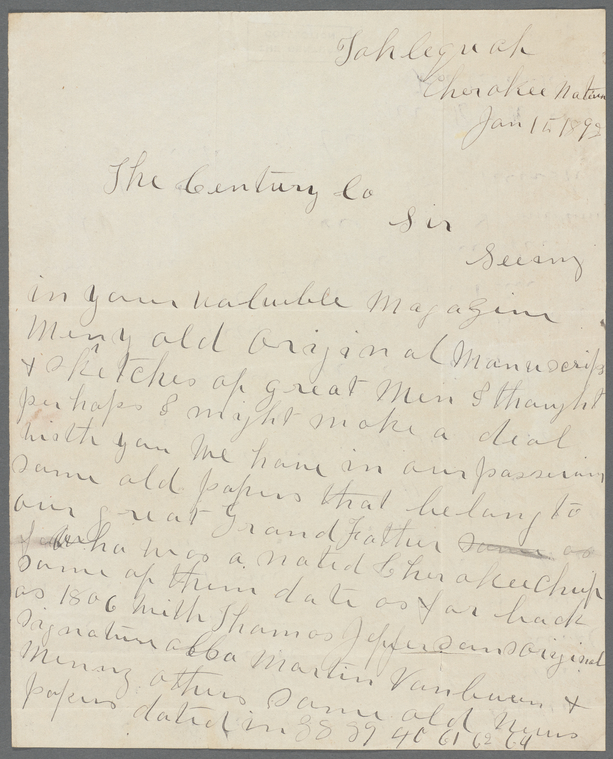 Tahlequah
Cherokee Nation
Jan 15 1892
The Century Co
Sir
Seeing
in your valuble Magazine
Meny old Original Manuscrips
& sketches of great Men I thought
perhaps I might make a deal
with you We have in our possession
some old papers that belong to
our great Grand Father some of
who was a noted Cherokee chief
some of them date as far back
as 1806 with Thomas Jeffersons original
signature also Martin Vanburen &
Menny others some old News
papers dated in 38 39 40 61 62 64